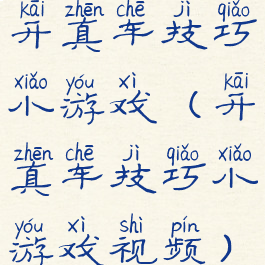 kāi zhēn chē jì qiǎo
开真车技巧
xiǎo yóu xì kāi
小游戏（开
zhēn chē jì qiǎo xiǎo
真车技巧小
yóu xì shì pín
游戏视频）